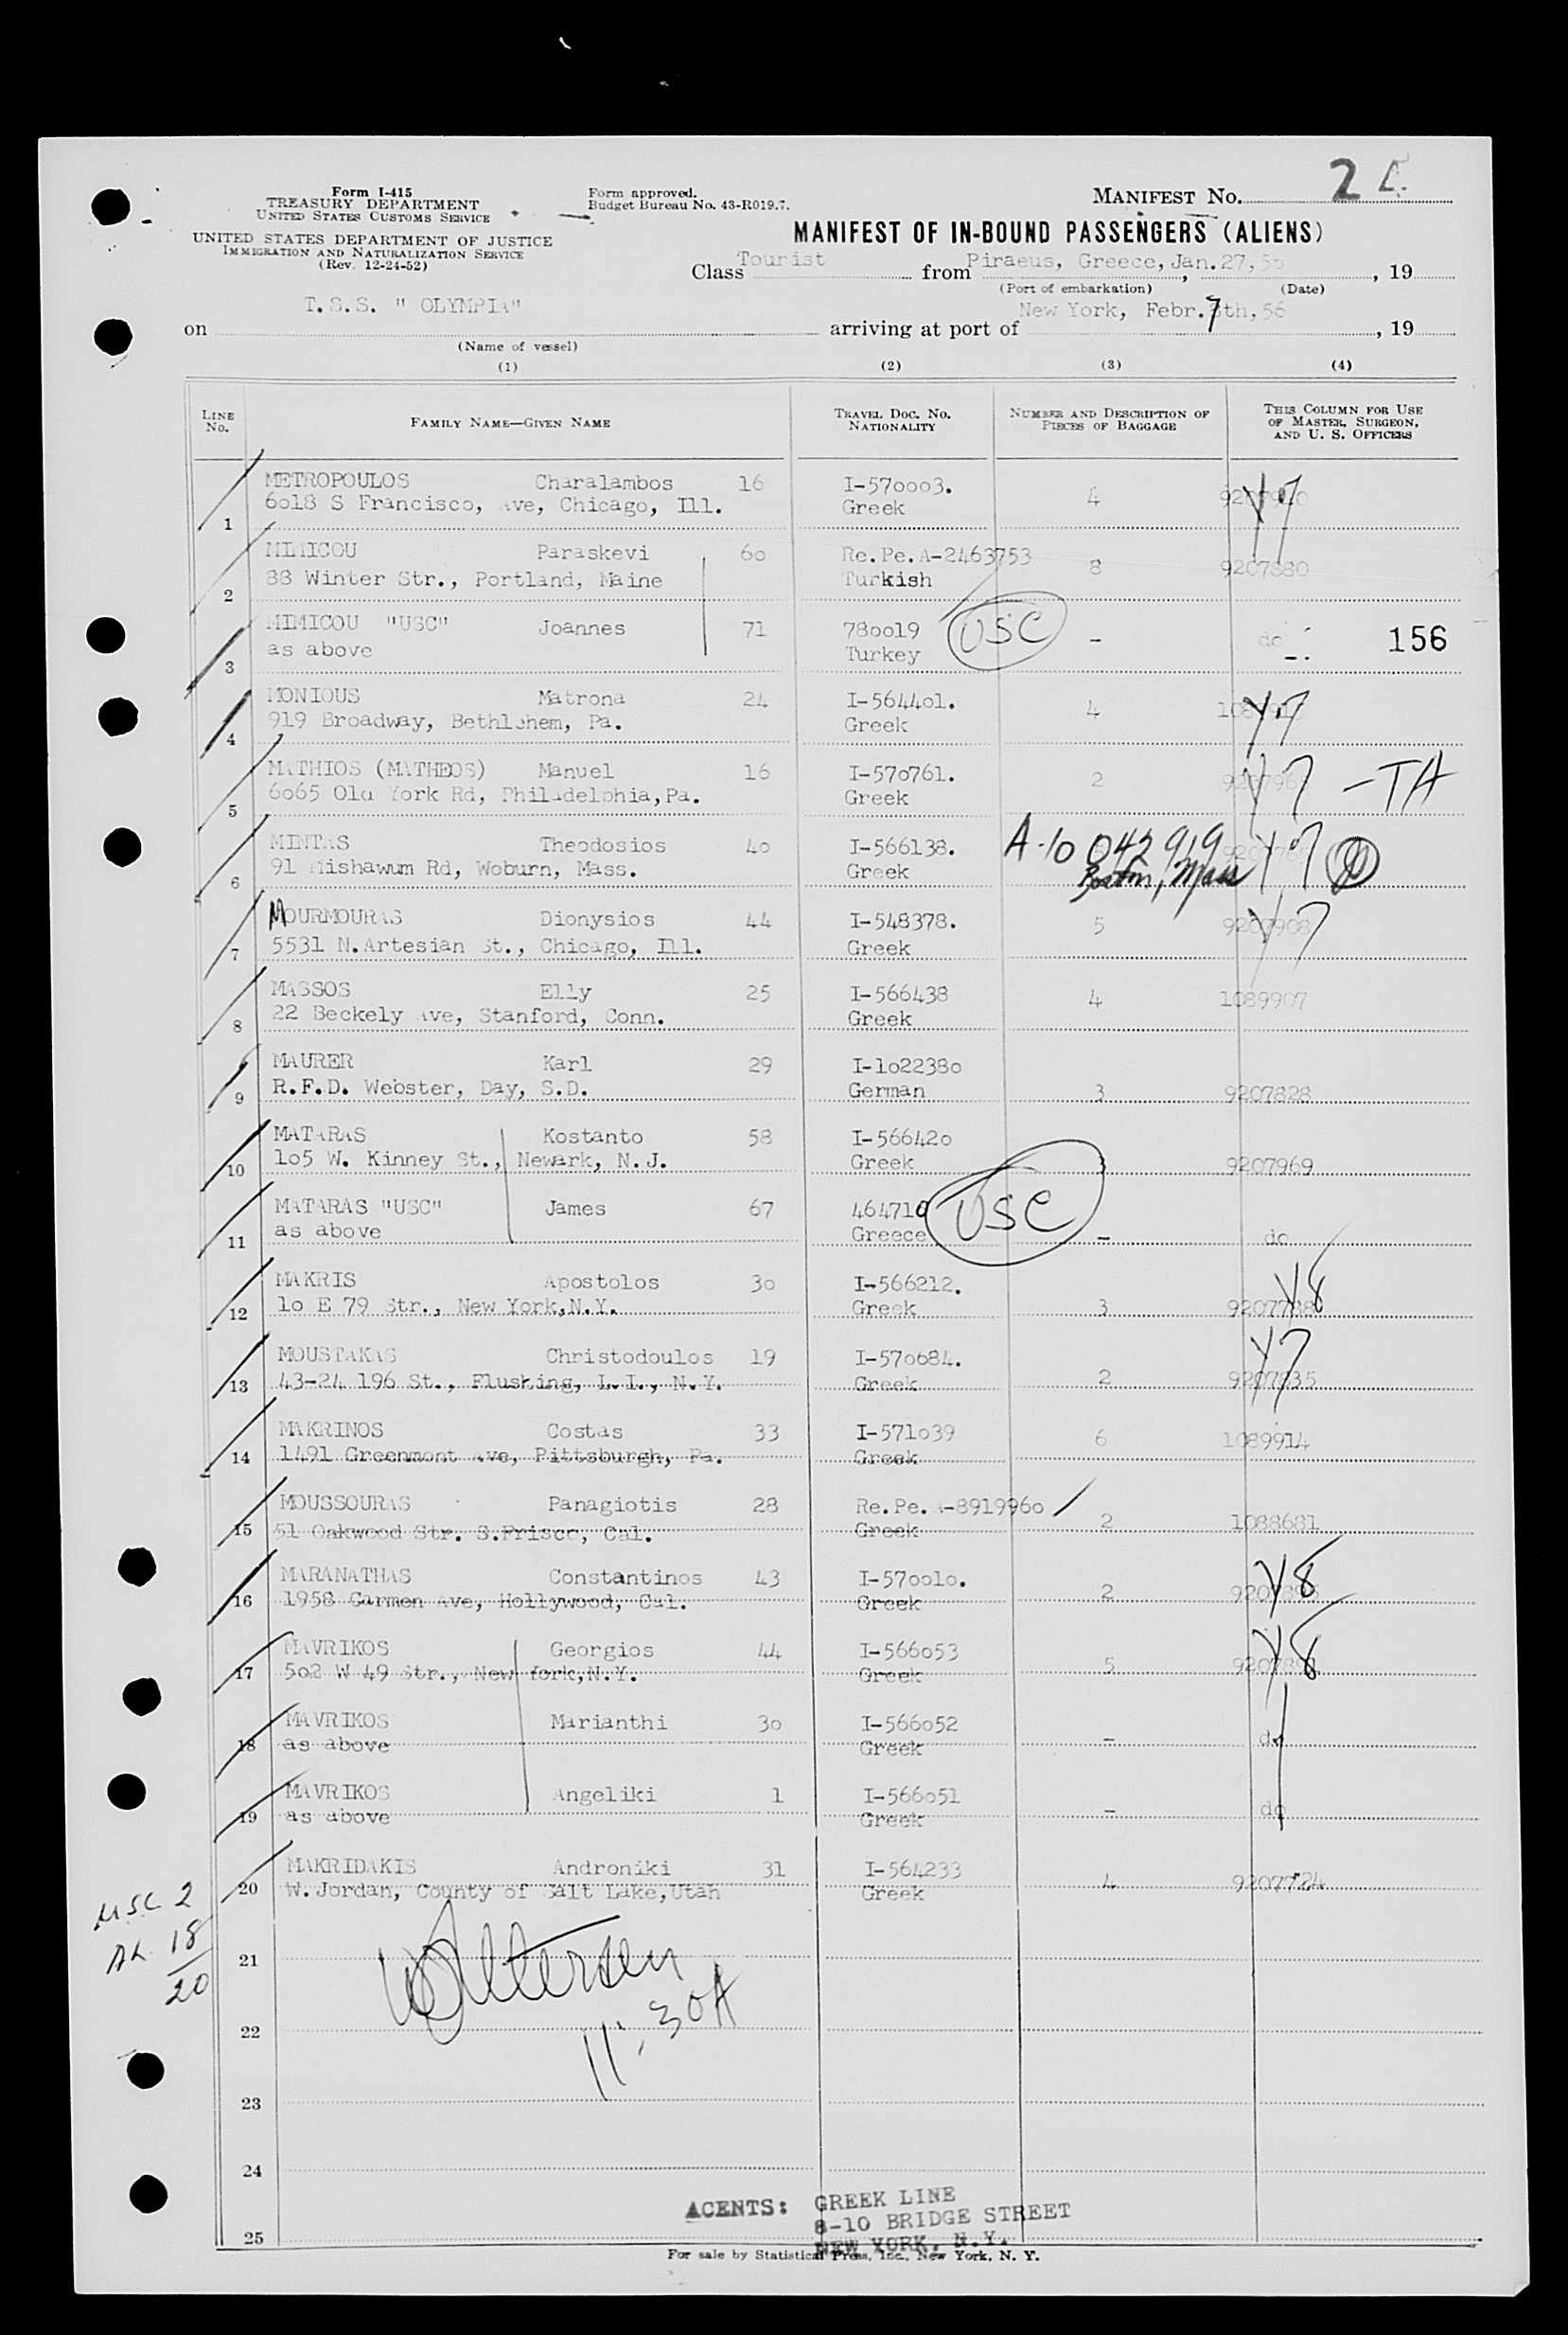 Form I-415
TREASURY DEPARTMENT
UNITED STATES CUSTOMS SERVICE
UNITED STATES DEPARTMENT OF JUSTICE
IMMIGRATION AND NATURALIZATION SERVICE
(Rev. 12-24-52)
Form approved.
Budget Bureau No. 43-R019.7.
MANIFEST No. 2
MANIFEST OF IN-BOUND PASSENGERS (ALIENS)
Class Tourist from Piraeus, Greece, Jan. 27, 56, 19
(Port of embarkation) (Date)
on T.S.S. " OLYMPIA" arriving at port of New York, Febr. 7th, 56, 19
(Name of vessel)
(1) (2) (3) (4)
LINE No. FAMILY NAME—GIVEN NAME TRAVEL DOC. No. NATIONALITY NUMBER AND DESCRIPTION OF PIECES OF BAGGAGE THIS COLUMN FOR USE OF MASTER, SURGEON, AND U. S. OFFICERS
METROPOULOS Charalambos 16 I-570003. 4 Y7
1 6018 S Francisco, Ave, Chicago, Ill. Greek
MIMICOU Paraskevi 60 Re.Pe.A-2463753 8 9207880
2 88 Winter Str., Portland, Maine Turkish
MIMICOU "USC" Joannes 71 780019 USC - do 156
3 as above Turkey
MONIOUS Matrona 24 I-564401. 4 Y7
4 919 Broadway, Bethlehem, Pa. Greek
MATHIOS (MATHEOS) Manuel 16 I-570761. 2 Y7 -TA
5 6065 Old York Rd, Philadelphia, Pa. Greek
MINTAS Theodosios 40 I-566138. A-10 042 919 Y7
6 91 Mishawum Rd, Woburn, Mass. Greek Boston, Mass
MOURMOURAS Dionysios 44 I-548378. 5 9207908 Y7
7 5531 N.Artesian St., Chicago, Ill. Greek
MASSOS Elly 25 I-566438 4 1089907
8 22 Beckely Ave, Stanford, Conn. Greek
MAURER Karl 29 I-1022380
9 R.F.D. Webster, Day, S.D. German 3 9207828
MATARAS Kostanto 58 I-566420
10 105 W. Kinney St., Newark, N.J. Greek 3 9207969
MATARAS "USC" James 67 464710 USC
11 as above Greece - do
MAKRIS Apostolos 30 I-566212. Y8
12 10 E 79 Str., New York, N.Y. Greek 3 9207788
MOUSTAKAS Christodoulos 19 I-570684. Y7
13 43-24 196 St., Flushing, L.I., N.Y. Greek 2 9207835
MAKRINOS Costas 33 I-571039 6 1089914
14 1491 Greenmont Ave, Pittsburgh, Pa. Greek
MOUSSOURAS Panagiotis 28 Re.Pe.A-8919960 2 1088681
15 51 Oakwood Str. S.Frisco, Cal. Greek
MARANATHAS Constantinos 43 I-570010. 2 Y8
16 1958 Garmen Ave, Hollywood, Cal. Greek
MAVRIKOS Georgios 44 I-566053 5 Y8
17 502 W 49 Str., New York, N.Y. Greek
MAVRIKOS Marianthi 30 I-566052 - do
18 as above Greek
MAVRIKOS Angeliki 1 I-566051 - do
19 as above Greek
MAKRIDAKIS Androniki 31 I-564233 4 9207724
20 W. Jordan, County of Salt Lake, Utah Greek
USC 2
AL 18
20
21
11:30A
22
23
24
25
AGENTS: GREEK LINE
8-10 BRIDGE STREET
NEW YORK, N.Y.
For sale by Statistical Press, Inc., New York, N. Y.